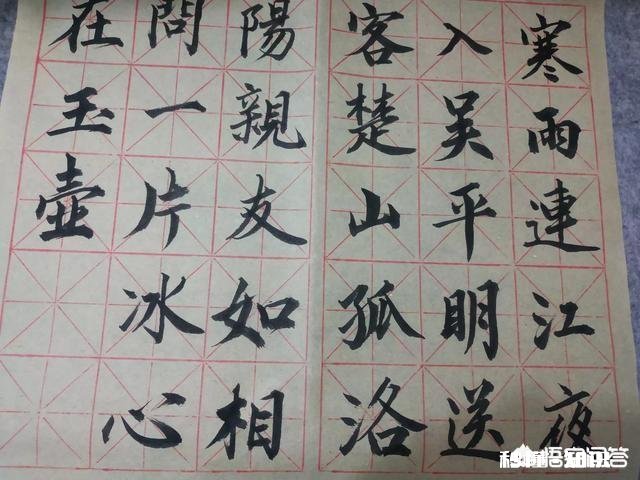 寒雨連江夜
入吴平明送
客楚山孤洛
陽親友如相
問一片冰心
在玉壺
悟空问答